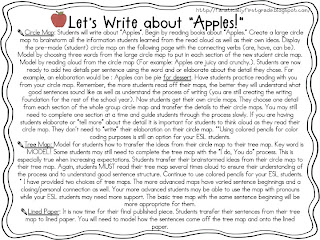 Let's Write about "Apples!"
Circle Map: Students will write about "Apples". Begin by reading books about "Apples." Create a large circle
map to brainstorm all the information students learned from the read aloud as well as their own ideas. Display
the pre-made (student) circle map on the following page with the connecting verbs (are, have, can be).
Model by choosing three words from the large circle map to put in each section of the new student circle map.
Model by reading aloud from the circle map (For example: Apples are juicy and crunchy.). Students are now
ready to add two details per sentence using the word and or elaborate about the detail they chose. For
example, an elaboration would be : Apples can be pies for dessert. Have students practice reading with you
from your circle map. Remember, the more students read off their maps, the better they will understand what
good sentences sound like as well as understand the process of writing (you are still creating the writing
foundation for the rest of the school year). Now students get their own circle maps. They choose one detail
from each section of the whole group circle map and transfer the details to their circle maps. You may still
need to complete one section at a time and guide students through the process slowly. If you are having
students elaborate or "tell more" about the detail it is important for students to think aloud as they read their
circle map. They don't need to "write" their elaboration on their circle map. **Using colored pencils for color
coding purposes is still an option for your ESL students.
Tree Map: Model for students how to transfer the ideas from their circle map to their tree map. Key word is
MODEL!! Some students may still need to complete the tree map with the "I do, You do" process. This is
especially true when increasing expectations. Students transfer their brainstormed ideas from their circle map to
their tree map. Again, students MUST read their tree map several times aloud to ensure their understanding of
the process and to understand good sentence structure. Continue to use colored pencils for your ESL students.
* I have provided two choices of tree maps. The more advanced maps have varied sentence beginnings and a
closing/personal connection as well. Your more advanced students may be able to use the map with pronouns
while your ESL students may need more support. The basic tree map with the same sentence beginning will be
more appropriate for them.
Lined Paper: It is now time for their final published piece. Students transfer their sentences from their tree
map to lined paper. You will need to model how the sentences come off the tree map and onto the lined
paper.